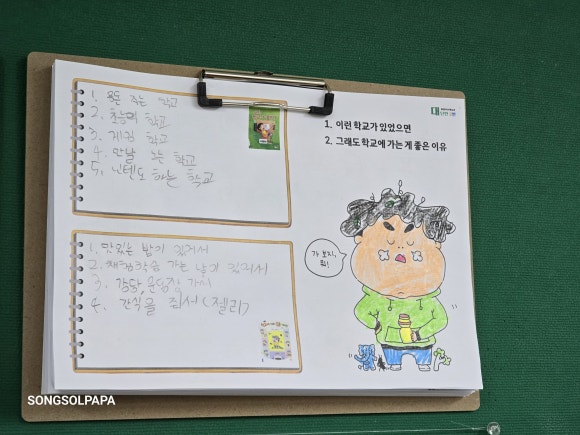 1. 돈 주는 학교
2. 초능력 학교
3. 게임 학교
4. 만날 노는 학교
5. 닌텐도 하는 학교
1. 맛있는 밥이 있어서
2. 체험학습 가는 날이 있어서
4. 간식을 줘서(젤리)
1. 이런 학교가 있었으면
2. 그래도 학교에 가는 게 좋은 이유
가 보지,
뭐!
SONGSOLPAPA